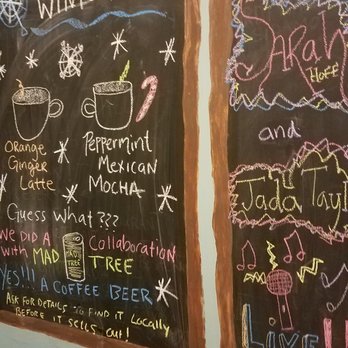 Orange
Ginger
Latte
Peppermint
Mexican
Mocha
Guess What ???
We did a
Collaboration
with MAD
TREE
MAD
TREE
YES!!! A COFFEE BEER
Ask for details to find it locally
before it sells out!
Sarah
Hoff
and
Jada Tayl
LIVE